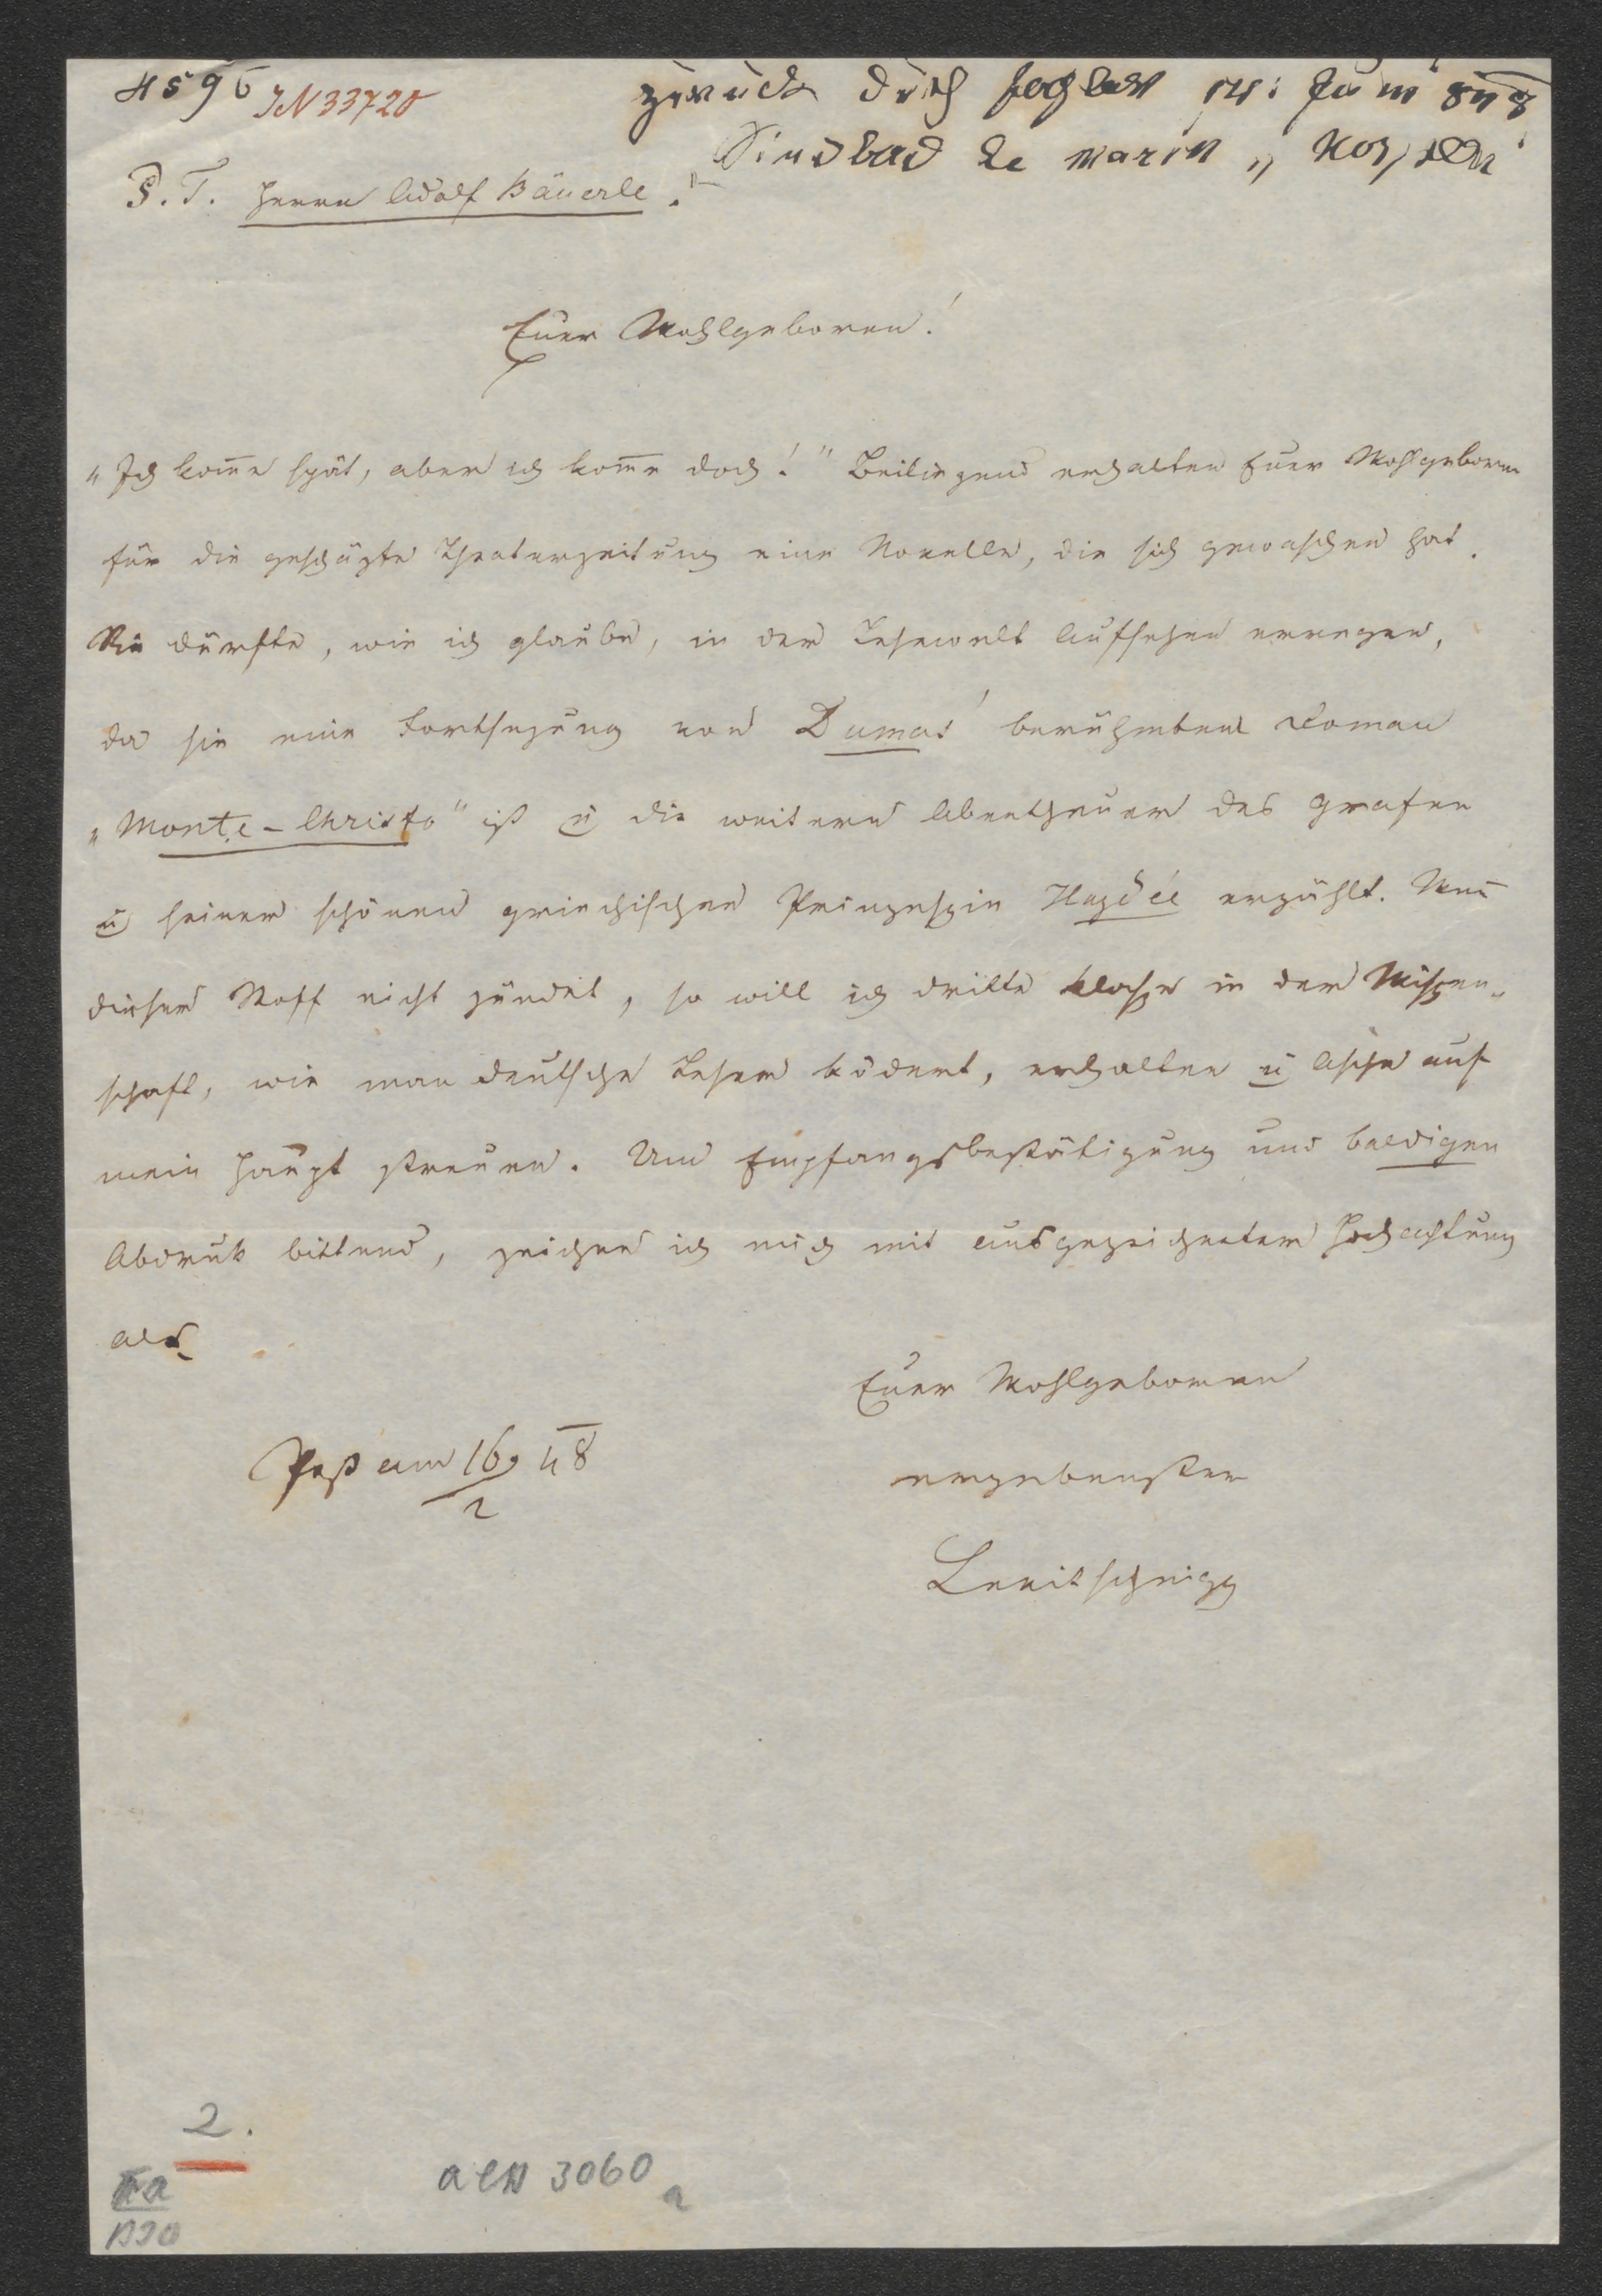 4596 IN 33720
zurück durch 14: Juni 848
Sindbad le marin "Novelle
P. T. Herrn Adolf Bäuerle.
Euer Wohlgeboren!
„Ich kom̅e spät, aber ich kom̅e doch!" Beiliegend erhalten Euer Wohlgeboren
für die geschäzte Theaterzeitung eine Novelle, die sich gewaschen hat.
Sie dürfte, wie ich glaube, in der Lesewelt Aufsehen erregen,
da sie eine Fortsezung von Dumas' berühmten Roman
„Monte-Christo" ist u die weitern Abentheuer des Grafen
u seiner schönen griechischen Prinzessin Haydée erzählt. Wen̅
dieser Stoff nicht zündet, so will ich dritte Klasse in der Wissen-
schaft, wie man deutsche Leser ködert, erhalten u Asche auf
mein Haupt streuen. Um Empfangsbestätigung und baldigen
Abdruk bittend, zeichne ich mich mit ausgezeichneter Hochachtung
als
Euer Wohlgeboren
Pest am 16/2 48
ergebenster
Levitschnigg
2.
aln 3060
a